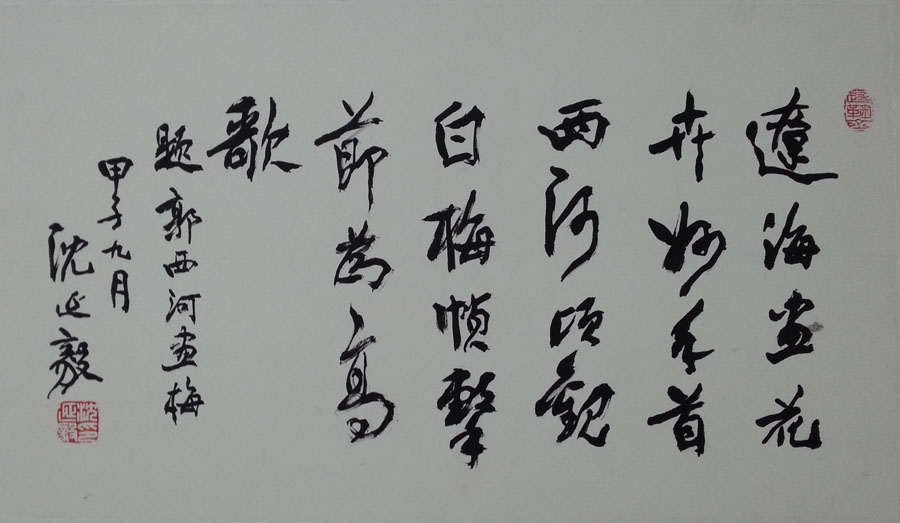 遼海画花
卉妙手首
西河頃觀
白梅幀擊
節為高
歌
題郭西河画梅
甲子九月
沈延毅